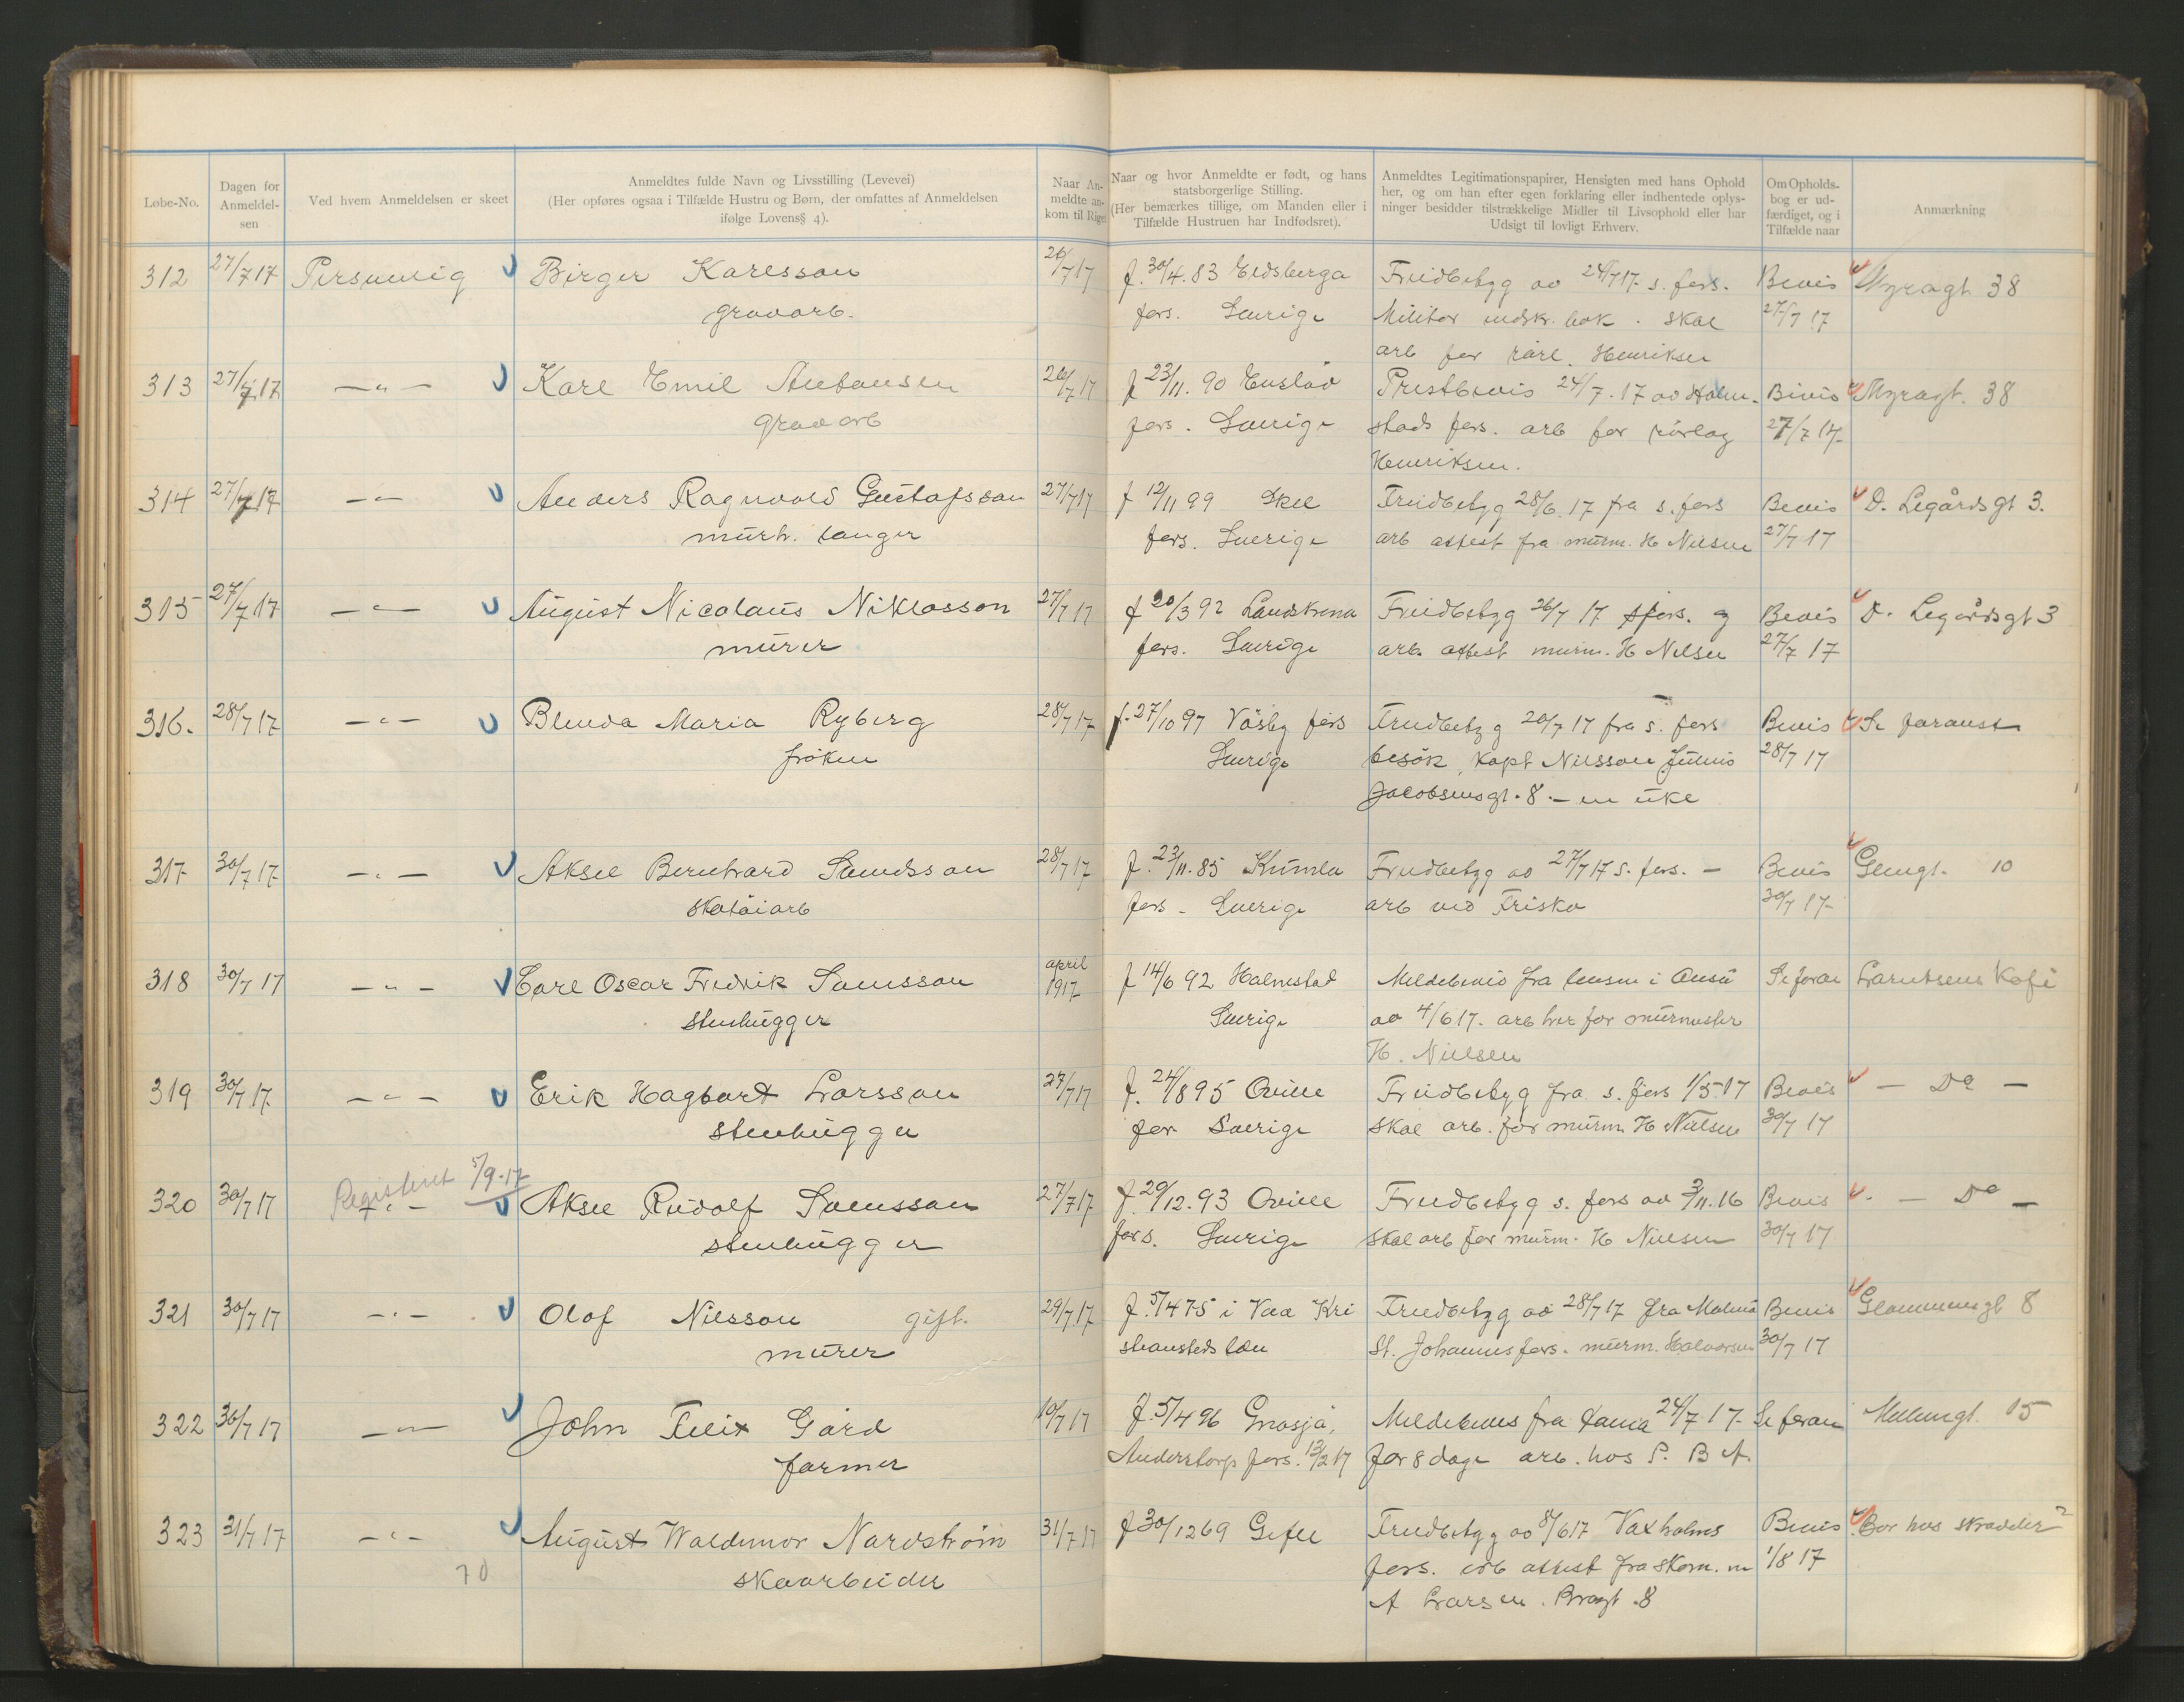 Løbe-No.
Dagen for
Anmeldel-
sen
Ved hvem Anmeldelsen er skeet
Anmeldtes fulde Navn og Livsstilling (Levevei)
(Her opføres ogsaa i Tilfælde Hustru og Børn, der omfattes af Anmeldelsen
ifølge Lovens § 4).
Naar An-
meldte an-
kom til Riget
Naar og hvor Anmeldte er født, og hans
statsborgerlige Stilling.
(Her bemærkes tillige, om Manden eller i
Tilfælde Hustruen har Indfødsret).
Anmeldtes Legitimationspapirer, Hensigten med hans Ophold
her, og om han efter egen forklaring eller indhentede oplys-
ninger besidder tilstrækkelige Midler til Livsophold eller har
Udsigt til lovligt Erhverv.
Om Opholds-
bog er ud-
færdiget, og i
Tilfælde naar
Anmærkning
312 27/7 17 Personlig Birger Karlsson 26/7 17 f. 30/4. 83 Eldsberga Freidbetyg av 24/7 17 s. fors. Bevis Myragt. 38
gravarb. fors. Sverige Militær indskr. bok. skal 27/7 17
arb for rörl. Henriksen
313 27/7 17 — " — Karl Emil Antonsen 26/7 17 f 23/11. 90 Enslöv Prestbevis 24/7. 17 av Holm- Bevis Myragt. 38
gravarb fors. Sverige stads fors. arb for rörlag 27/7 17
Henriksen.
314 27/7 17 — " — Anders Ragnvald Gustafsson 27/7 17 f 12/11 99 Freidbetyg 28/6 17 fra s. fors Bevis D. Legårdsgt 3.
murh. langer fors. Sverige arb attest fra murm. H Nielsen 27/7 17
315 27/7 17 — " — August Nicolaus Niklasson 27/7 17 f 20/3 92 Landskrona Freidbetyg 26/7 17 s fors. og Bevis D. Legårdsgt 3
murer fors. Sverige arb. attest murm. H Nelsen 27/7 17
316. 28/7 17 — " — Blenda Maria Ryberg 28/7 17 f. 27/10 97 Väsby fors Freidbetyg 20/7 17 fra s. fors Bevis Se foranst
fröken Sverige besök, Kapt Nilsson Julius 28/7 17
Jacobsensgt. 8 — en uke
317 30/7 17 — " — Aksel Bernhard Svendsson 28/7 17 f. 23/11. 85 Kumla Freidbetyg av 27/7 17 s. fors. — Bevis Glemgt. 10
skotöiarb fors - Sverige arb ved Frisko 30/7 17
318 30/7 17 — " — Carl Oscar Fredrik Svensson april f 14/6 92 Halmstad Meldebevis fra lensm i Onsö Se foran Larentsens Kafe
1917
stenhugger Sverige av 4/6 17. arb her for murmester
H. Nielsen
319 30/7 17 — " — Erik Hagbart Larsson 27/7 17 f. 24/8 95 Qville Freidbetyg fra s. fors 1/5 17 Bevis — Do —
stenhugger for Sverige skal arb. for murm H Nielsen 30/7 17
Registeret 5/9-17
320 30/7 17 — " — Aksel Rudolf Svensson 27/7 17 f. 29/12. 93 Qville Freidbetyg s. fors av 3/11. 16 Bevis — Do —
stenhugger fors. Sverige skal arb for murm. H Nielsen 30/7 17
321 30/7 17 — " — Olof Nilsson gift. 29/7 17 f. 5/4 75 i Vaa Kri Freidbetyg av 28/7 17 fra Malmö Bevis Glommensgt 8
murer stiansteds län St. Johannes fors. murm. Halvorsen 30/7 17
322 30/7 17 — " — John Felix Gård 10/7 17 f. 5/4 96 Gnosjö, Meldebevis fra 24/7 17 Se foran 15
former Anderstorps fors. 13/2 17 for 8 dage arb. hos P. B A.
323 31/7 17 — " — August Waldemar Nordström 31/7 17 f 30/12 69 Gefle Freidbetyg av 8/6 17 Vaxholms Bevis Bor hos skrædder
70 skoarbeider fors. arb attest fra skom. m 1/8 17
A Larsen. Bragt. 8